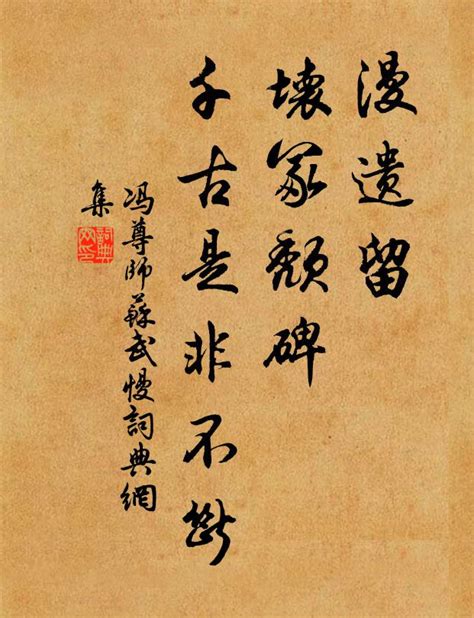 漫遗留
壞冢颓碑
千古是非不斷
冯尊師蘇武慢詞典網
集